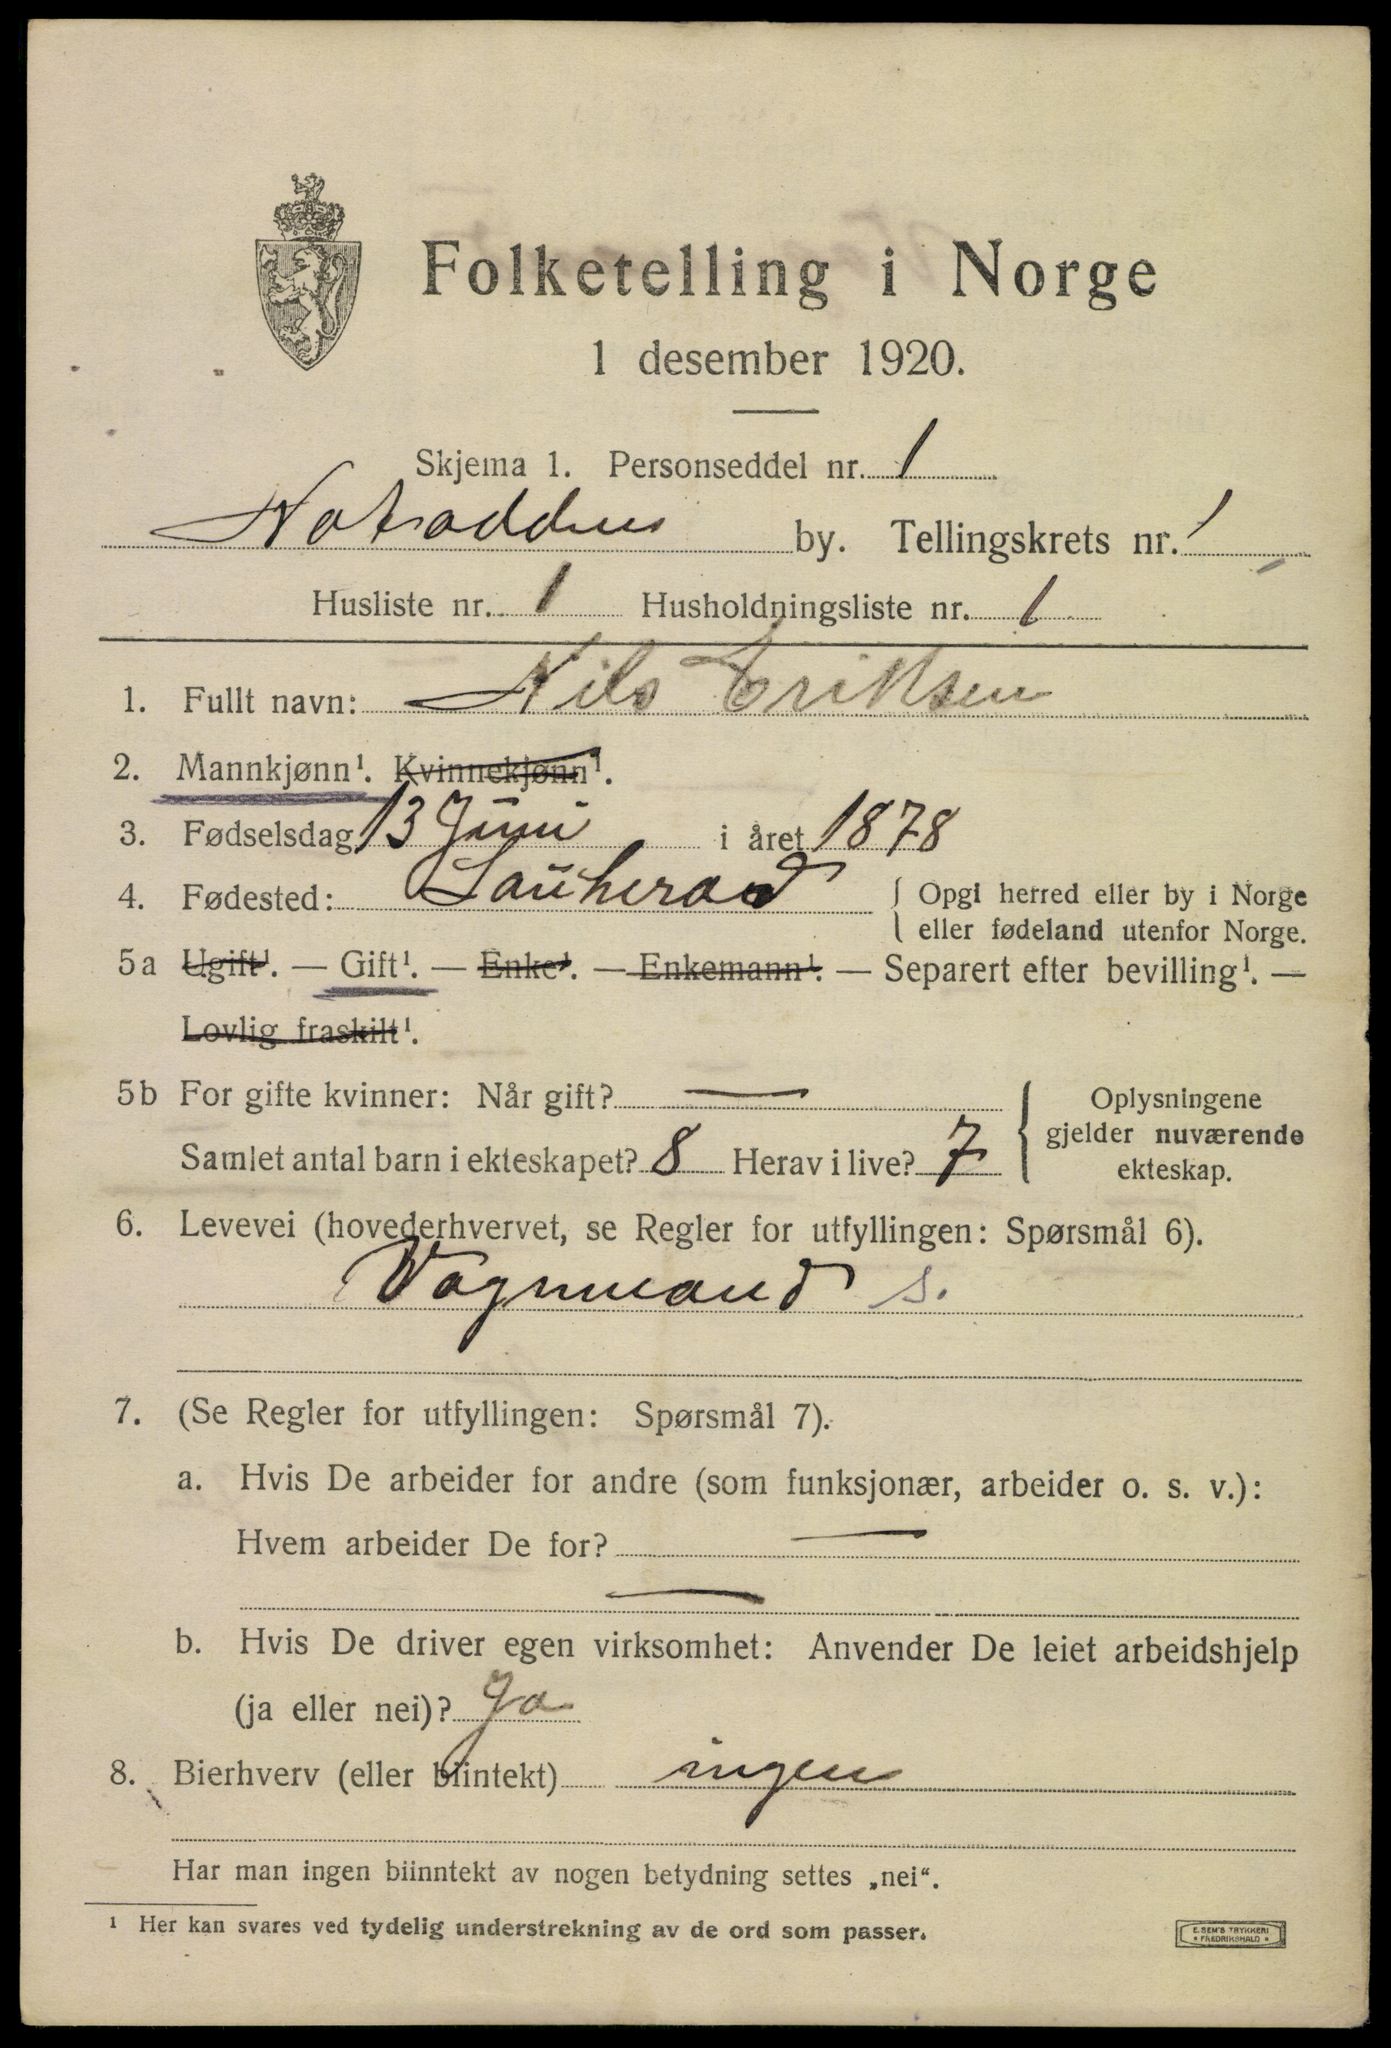 Folketelling i Norge
1 desember 1920.
Skjema 1. Personseddel nr. 1
Notodden by. Tellingskrets nr. 1
Husliste nr. 1 Husholdningsliste nr. 1
1. Fullt navn: Nils Eriksen
2. Mannkjønn¹. Kvinnekjønn¹.
3. Fødselsdag 13 Juni i året 1878
4. Fødested: Lauherad { Opgi herred eller by i Norge
eller fødeland utenfor Norge.
5a Ugift¹. — Gift¹. — Enke¹. — Enkemann¹. — Separert efter bevilling¹. —
Lovlig fraskilt¹.
5b For gifte kvinner: Når gift? — { Oplysningene
gjelder nuværende
Samlet antal barn i ekteskapet? 8 Herav i live? 7 ekteskap.
6. Levevei (hovederhvervet, se Regler for utfyllingen: Spørsmål 6).
Vognmand s.
7. (Se Regler for utfyllingen: Spørsmål 7).
a. Hvis De arbeider for andre (som funksjonær, arbeider o. s. v.):
Hvem arbeider De for? —
—
b. Hvis De driver egen virksomhet: Anvender De leiet arbeidshjelp
(ja eller nei)? Ja
8. Bierhverv (eller biintekt) ingen
Har man ingen biinntekt av nogen betydning settes „nei“.
¹ Her kan svares ved tydelig understrekning av de ord som passer.
E. SEM'S TRYKKERI
* FREDRIKSHALD *